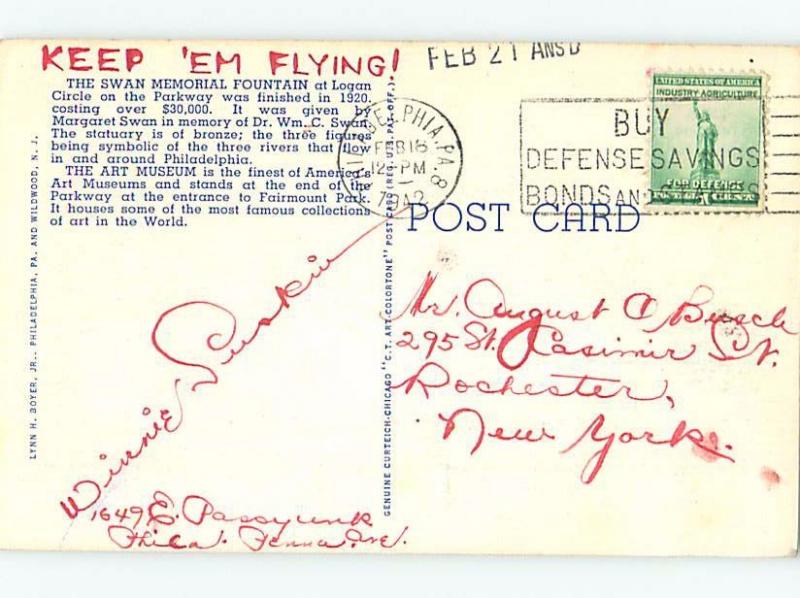 KEEP 'EM FLYING!
FEB 21 ANS'D
THE SWAN MEMORIAL FOUNTAIN at Logan
Circle on the Parkway was finished in 1920,
costing over $30,000. It was given by
Margaret Swan in memory of Dr. Wm. C. Swan.
The statuary is of bronze; the three figures
being symbolic of the three rivers that flow
in and around Philadelphia.
THE ART MUSEUM is the finest of America's
Art Museums and stands at the end of the
Parkway at the entrance to Fairmount Park.
It houses some of the most famous collections
of art in the World.
LYNN H. BOYER, JR., PHILADELPHIA, PA. AND WILDWOOD, N. J.
PHILADELPHIA, PA. 8
FEB 18
12-PM
1942
BUY
DEFENSE SAVINGS
BONDS AND STAMPS
UNITED STATES OF AMERICA
INDUSTRY AGRICULTURE
FOR DEFENSE
POST CARD
GENUINE CURTEICH-CHICAGO "C. T. ART-COLORTONE" POST CARD (REG. U.S. PAT. OFF.)
Winnie
1649 E. Passyunk
Phila. Penna. Ave.
Mr. August A Busch
295 St. Casimir St.
Rochester,
New York.